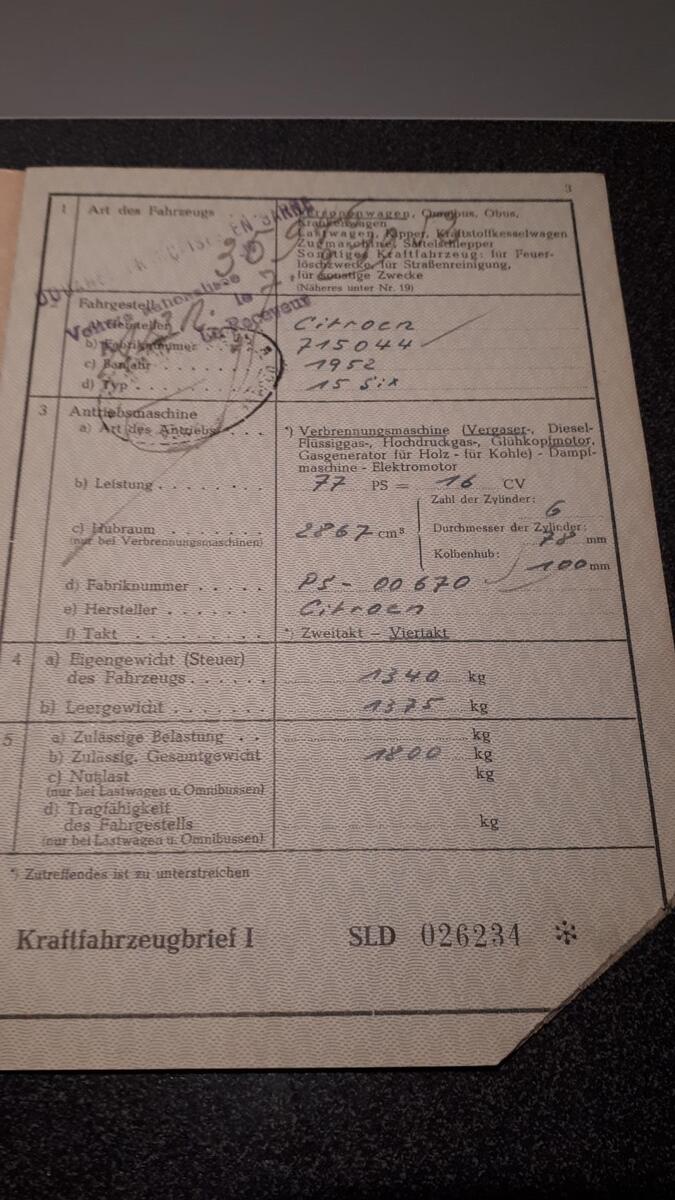 3
1 Art des Fahrzeugs
Personenwagen, Omnibus, Obus,
Krankenwagen
Lastwagen, Kipper, Kraftstoffkesselwagen
Zugmaschine, Sattelschlepper
Sonstiges Kraftfahrzeug: für Feuer-
löschzwecke, für Straßenreinigung,
für sonstige Zwecke
(Näheres unter Nr. 19)
Voiture Nationalisée
le
Le Receveur
Fahrgestell
Citroen
b) Fabriknummer 715044
c) Baujahr 1952
d) Typ 15 Six
3 Antriebsmaschine
a) Art des Antriebs *) Verbrennungsmaschine (Vergaser-, Diesel-
Flüssiggas-, Hochdruckgas-, Glühkopfmotor,
Gasgenerator für Holz - für Kohle) - Dampf-
maschine - Elektromotor
b) Leistung 77 PS = 16 CV
c) Hubraum 2867 cm³
(nur bei Verbrennungsmaschinen)
Zahl der Zylinder:
6
Durchmesser der Zylinder:
78 mm
Kolbenhub:
100 mm
d) Fabriknummer PS - 00670
e) Hersteller Citroen
f) Takt *) Zweitakt - Viertakt
4 a) Eigengewicht (Steuer)
des Fahrzeugs 1340 kg
b) Leergewicht 1375 kg
5 a) Zulässige Belastung kg
b) Zulässig. Gesamtgewicht 1800 kg
c) Nutzlast kg
(nur bei Lastwagen u. Omnibussen)
d) Tragfähigkeit
des Fahrgestells kg
(nur bei Lastwagen u. Omnibussen)
*) Zutreffendes ist zu unterstreichen
Kraftfahrzeugbrief I SLD 026234 *